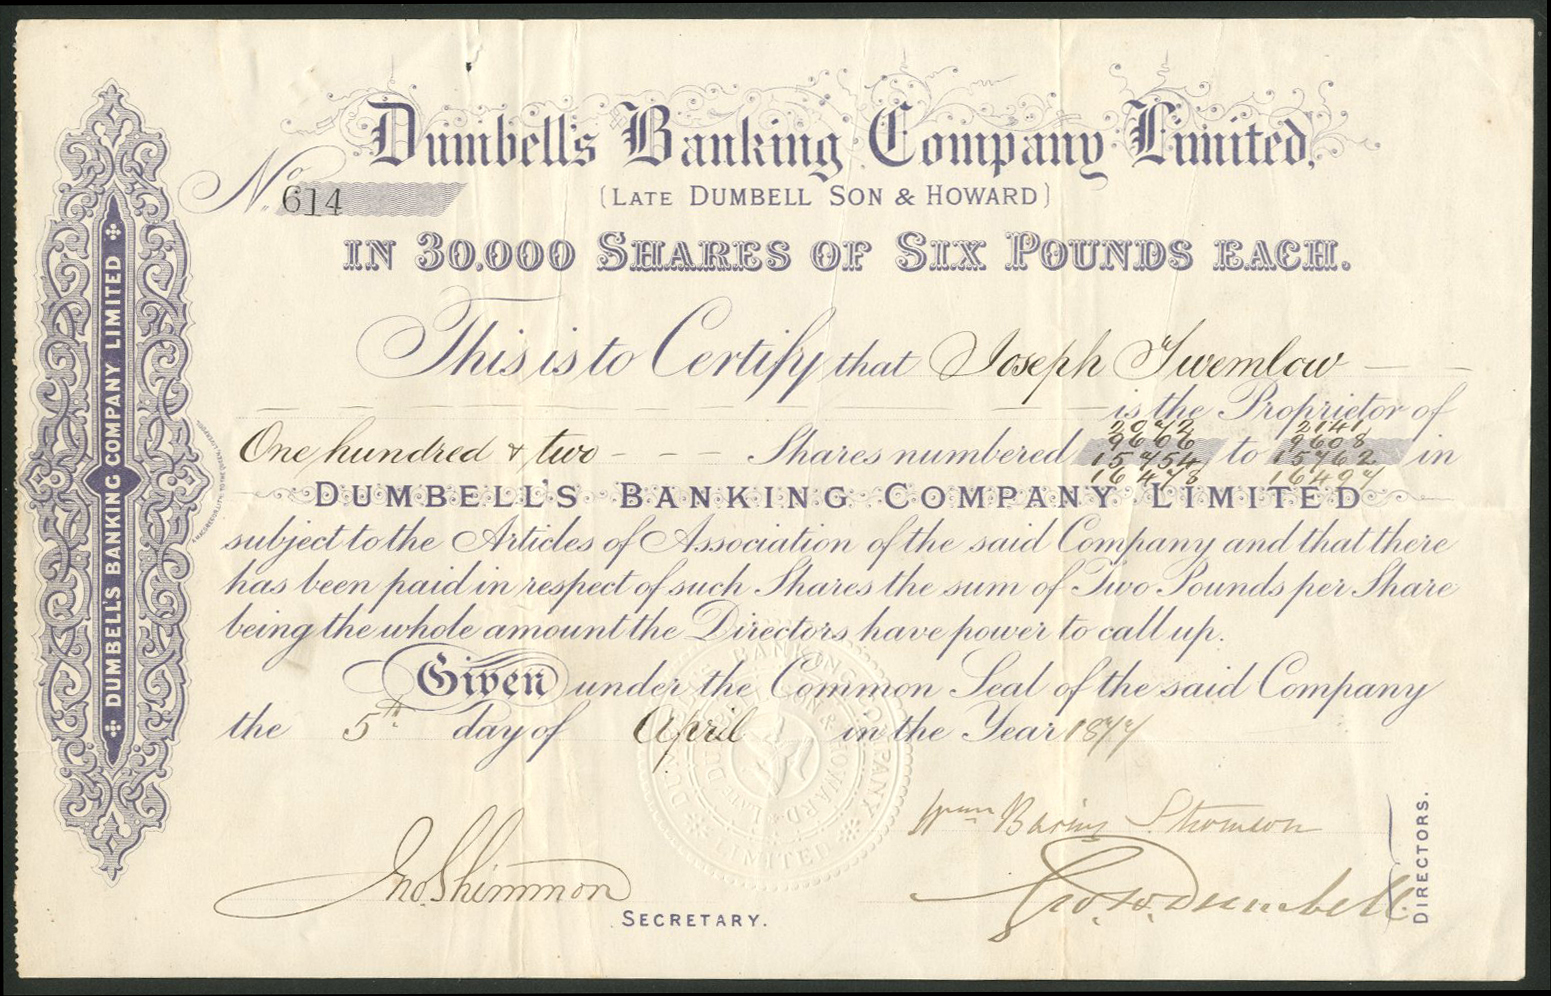 Dumbell's Banking Company Limited,
No. 614
(LATE DUMBELL SON & HOWARD)
IN 30,000 SHARES OF SIX POUNDS EACH.
This is to Certify that Joseph Twemlow
is the Proprietor of
2072 2141
9606 9608
One hundred & two Shares numbered 15754 to 15762 in
16478 16497
DUMBELL'S BANKING COMPANY LIMITED
subject to the Articles of Association of the said Company and that there
has been paid in respect of such Shares the sum of Two Pounds per Share
being the whole amount the Directors have power to call up.
Given under the Common Seal of the said Company
the 5th day of April in the Year 1877
Wm Baring Stromson
Jno. Shimmon
Geo. W. Dumbell
SECRETARY.
DIRECTORS.
DUMBELL'S BANKING COMPANY LIMITED
DUMBELL'S BANKING COMPANY LIMITED
LATE DUMBELL SON & HOWARD